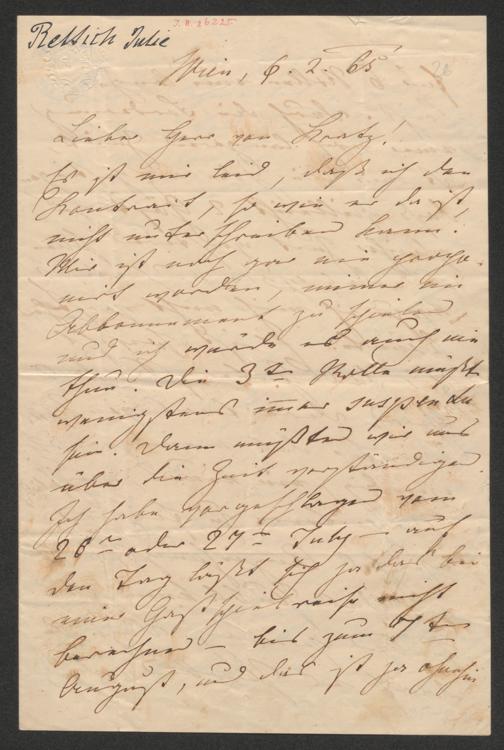 J.N. 26225
Rettich Julie
Wien, 6. 2. 65
Lieber Herr von
Es ist mir leid, daß ich den
Kontrakt, so wie er da ist,
nicht unterschreiben kann!
Mir ist noch gar nie propo-
nirt worden, immer im
Abbonnement zu spielen,
und ich würde es auch nie
thun. Die 3te Rolle müßte
wenigstens immer suspendu
sein. Dann müßten wir uns
über die Zeit verständigen.
Ich habe vorgeschlagen vom
26n oder 27n July – auf
den Tag läßt sich ja das bei
einer Gastspielreise nicht
berechnen – bis zum 7ten
August, und das ist ja ohnehin